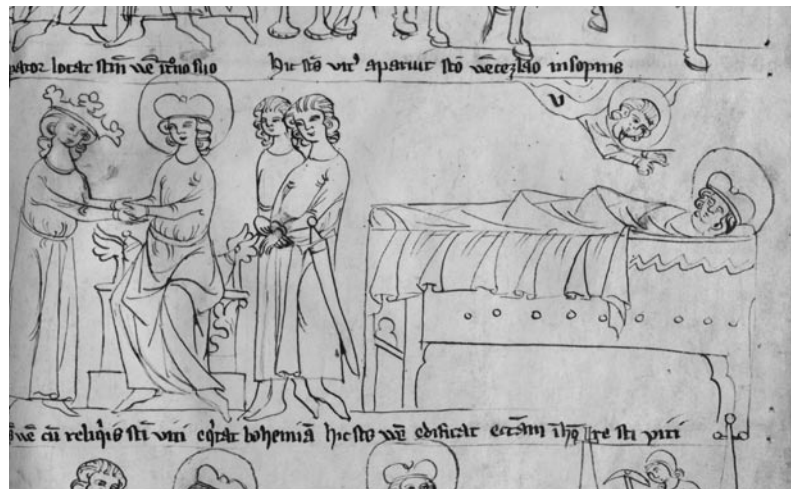 pator locat stm we i t'no suo hic sts vit' aparuit sto wecezlao in sopnis
we cu reliqis sti viti eqtat bohemia hic sts we edificat ectam i ho re sti viti